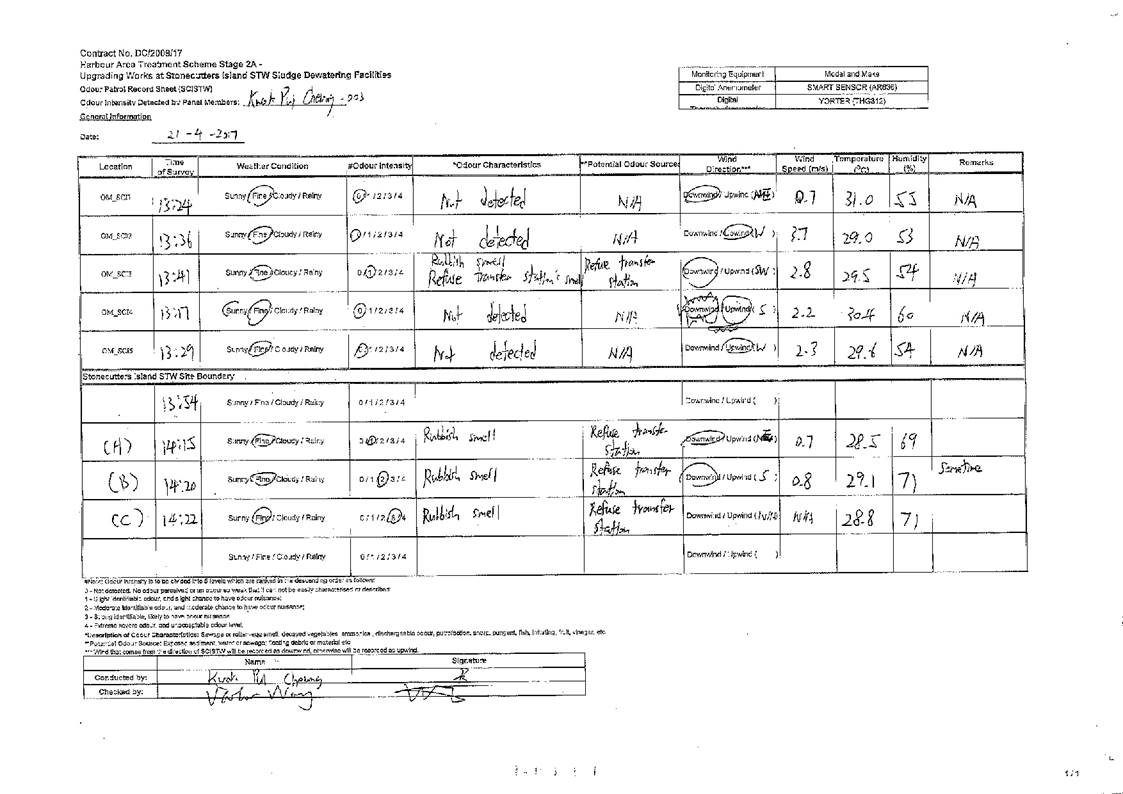 Contract No. DC/2009/17
Harbour Area Treatment Scheme Stage 2A -
Upgrading Works at Stonecutters Island STW Sludge Dewatering Facilities
Odour Patrol Record Sheet (SCISTW)
Odour Intensity Detected by Panel Members: Kwok Pui Cheung - 003
General Information
Date: 21 - 4 - 2017
Monitoring Equipment Model and Make
Digital Anemometer SMART SENSOR (AR836)
Digital YORTER (THG312)
Location Time of Survey Weather Condition #Odour Intensity *Odour Characteristics **Potential Odour Source Wind Direction*** Wind Speed (m/s) Temperature (°C) Humidity (%) Remarks
13:24 Sunny / Fine / Cloudy / Rainy 0/1/2/3/4 Not detected N/A Downwind / Upwind 0.7 31.0 55 N/A
13:36 Sunny / Fine / Cloudy / Rainy 0/1/2/3/4 Not detected N/A Downwind / Upwind (W) 3.7 29.0 53 N/A
13:41 Sunny / Fine / Cloudy / Rainy 0/1/2/3/4 Rubbish smell Refuse Transfer Station's smell Refuse transfer station Downwind / Upwind (SW) 2.8 29.5 54 N/A
Sunny / Fine / Cloudy / Rainy 0/1/2/3/4 Not detected N/A Downwind / Upwind ( S ) 2.2 30.4 60 N/A
13:29 Sunny / Fine / Cloudy / Rainy 0/1/2/3/4 Not detected N/A Downwind / Upwind (W) 2.3 29.6 54 N/A
Stonecutters Island STW Site Boundary
13:54 Sunny / Fine / Cloudy / Rainy 0/1/2/3/4 Downwind / Upwind ( )
14:15 Sunny / Fine / Cloudy / Rainy 0/1/2/3/4 Rubbish smell Refuse transfer station Downwind / Upwind 0.7 28.5 69
(B) 14:20 Sunny / Fine / Cloudy / Rainy 0/1/2/3/4 Rubbish smell Refuse transfer station Downwind / Upwind ( S ) 0.8 29.1 71 Sometime
(C) 14:22 Sunny / Fine / Cloudy / Rainy 0/1/2/3/4 Rubbish smell Refuse transfer station Downwind / Upwind (N/A) N/A 28.8 71
Sunny / Fine / Cloudy / Rainy 0/1/2/3/4 Downwind / Upwind ( )
#Note: Odour intensity is to be divided into 5 levels which are ranked in the descending order as follows:
0 - Not detected. No odour perceived or an odour so weak that it can not be easily characterised or described
1 - Slight identifiable odour, and slight chance to have odour nuisance;
2 - Moderate identifiable odour, and moderate chance to have odour nuisance;
3 - Strong identifiable, likely to have odour nuisance
4 - Extreme severe odour, and unacceptable odour level.
**Potential Odour Source: Exposed sediment, water or sewage, floating debris or material etc
*** Wind that comes from the direction of SCISTW will be recorded as downwind, otherwise will be recorded as upwind.
Name Signature
Conducted by: Kwok Pui Cheung
Checked by:
1/1